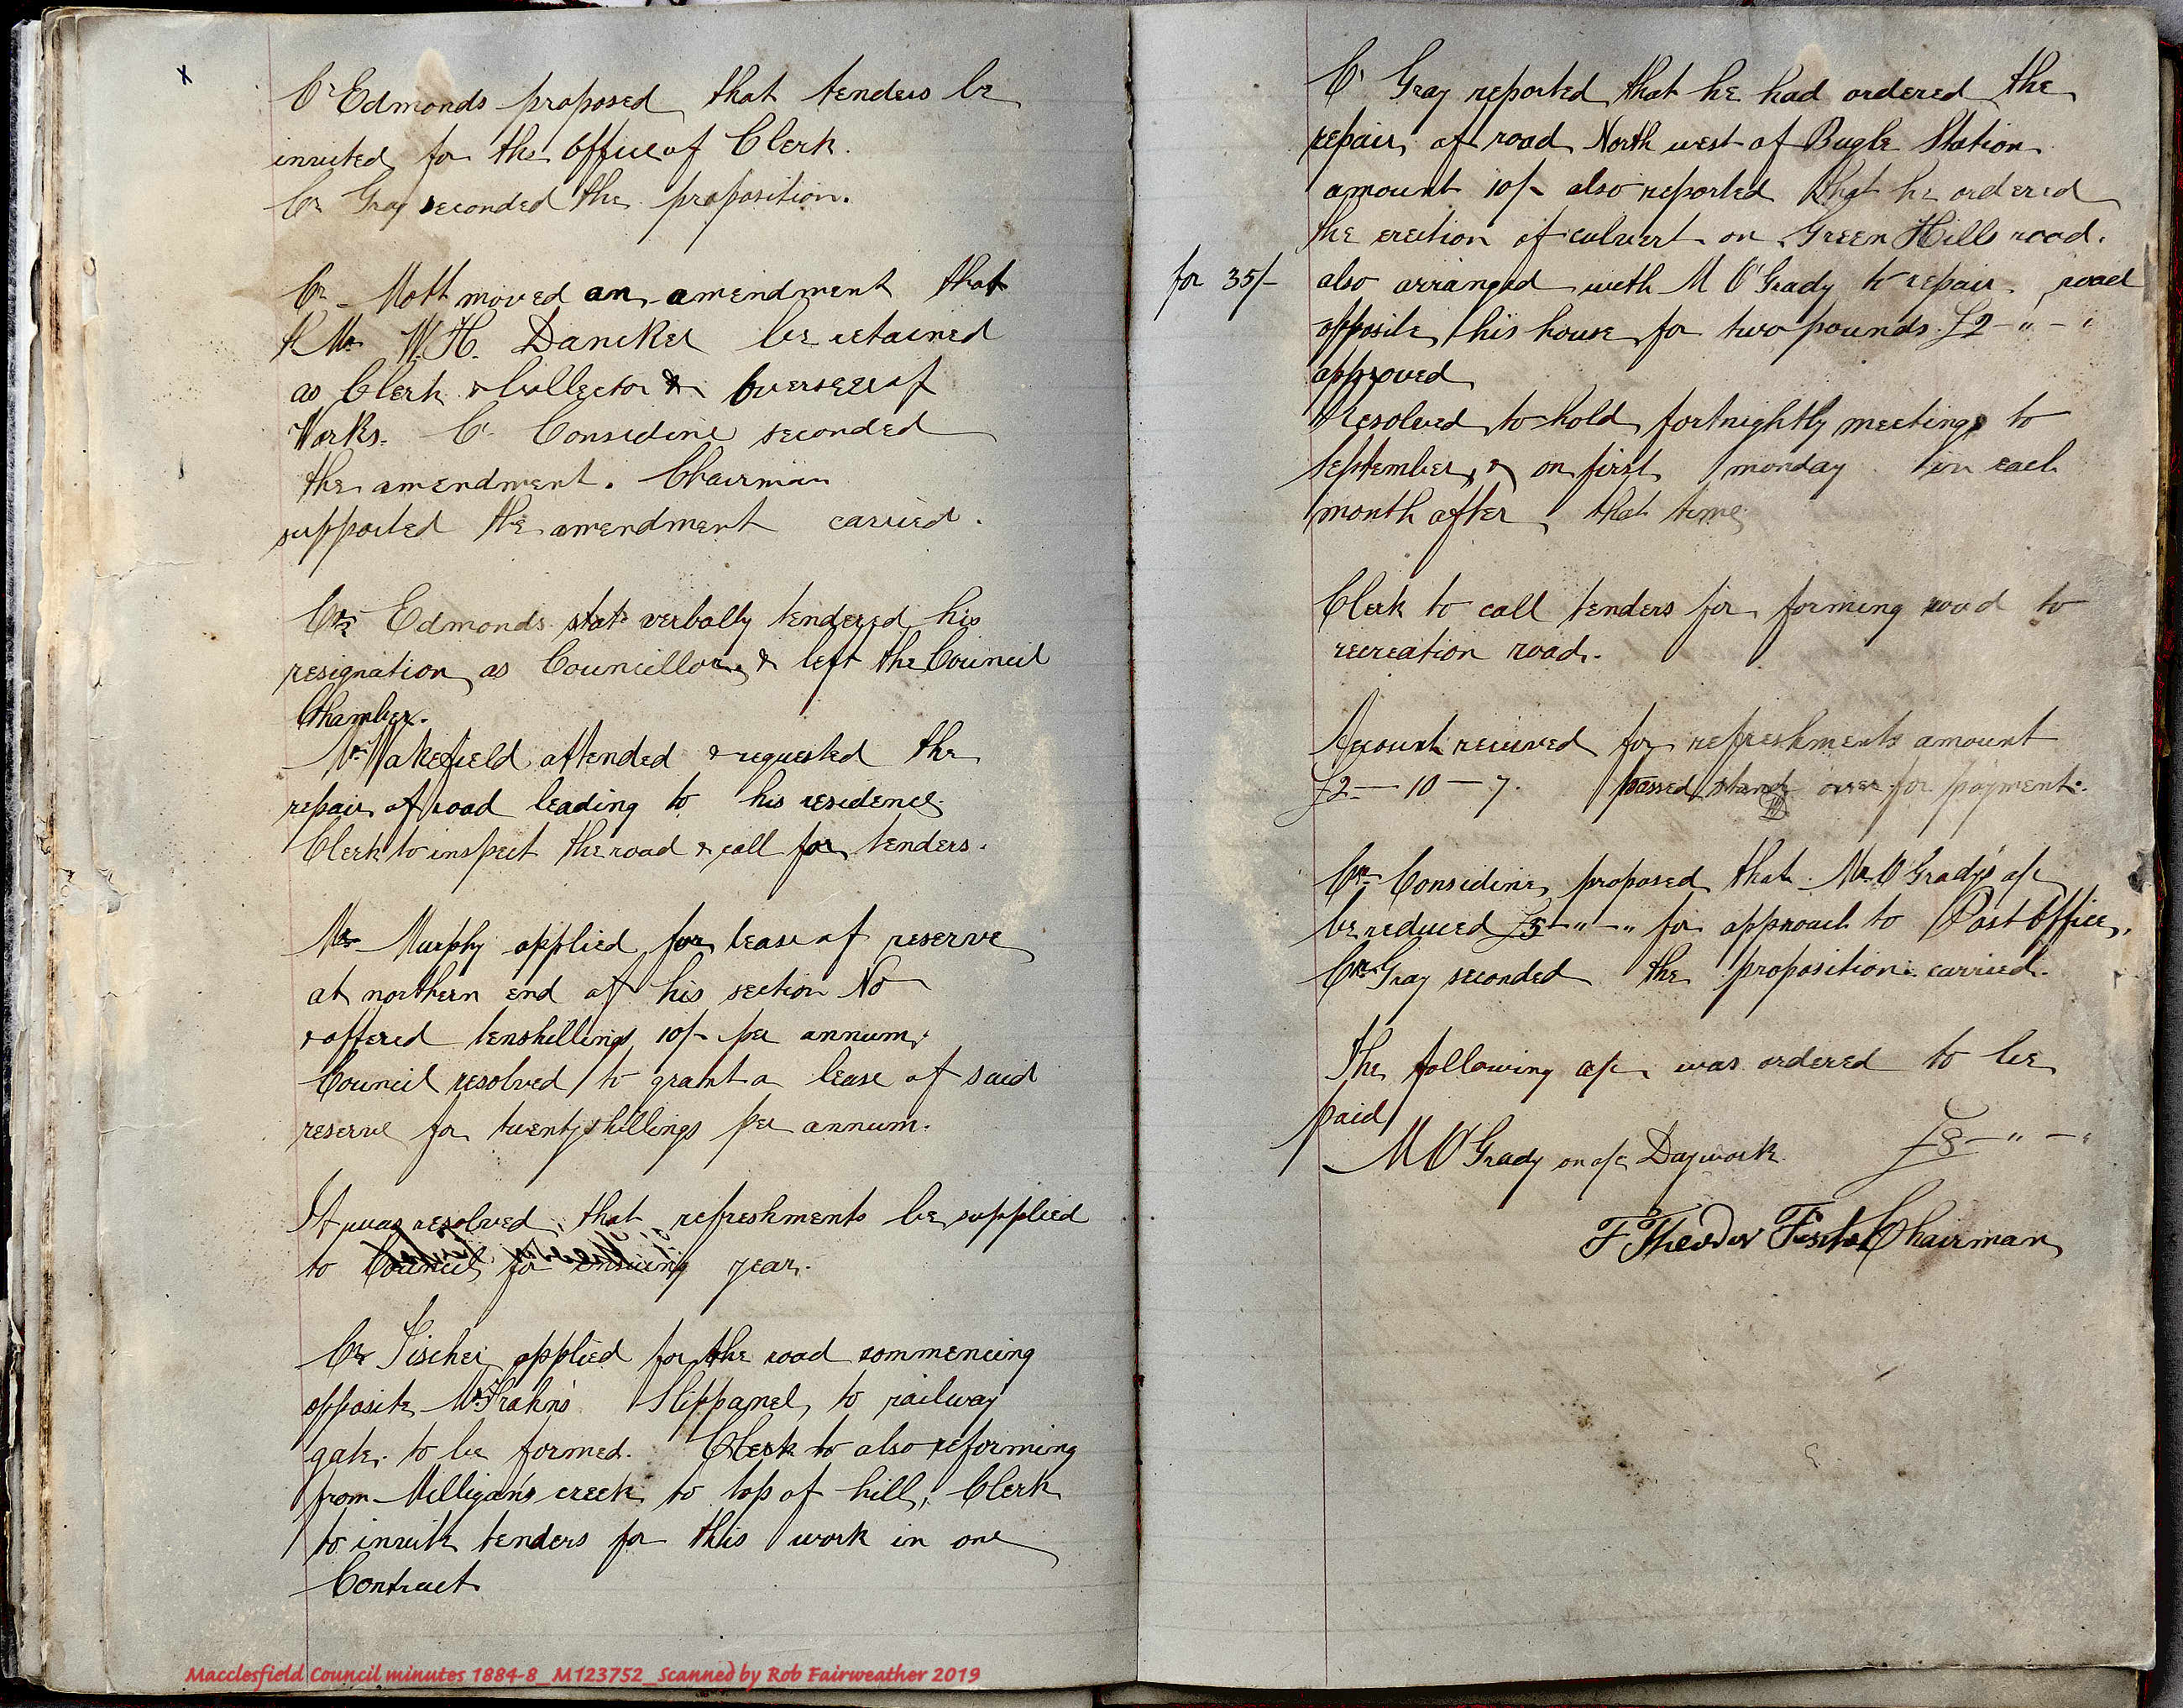 x
Cr Edmonds proposed that tenders be
invited for the Office of Clerk.
Cr Gray seconded the proposition.
Cr Mott moved an amendment that
Mr W.H. Dancker be retained
as Clerk & Collector & Overseer of
Works. Cr Considine seconded
the amendment. Chairman
supported the amendment carried.
Cr Edmonds verbally tendered his
resignation as Councillor & left the Council
Chamber.
Mr Wakefield attended & requested the
repair of road leading to his residence.
Clerk to inspect the road & call for tenders.
Mr Murphy applied for lease of reserve
at northern end of his section No
& offered ten shillings 10/- per annum.
Council resolved to grant a lease of said
reserve for twenty shillings per annum.
It was resolved that refreshments be supplied
to Council for ensuing year.
Cr Fischer applied for the road commencing
opposite Mr Frahn's Slippanel to railway
gate to be formed. Clerk to also reforming
from Milligan's creek to top of hill, Clerk
to invite tenders for this work in one
Contract
Cr Gray reported that he had ordered the
repair of road North west of Bugle Station
amount 10/- also reported that he ordered
the erection of culvert on Green Hills road.
for 35/- also arranged with M O'Grady to repair road
opposite his house for two pounds. £2 - " - "
approved
Resolved to hold fortnightly meetings to
September, & on first monday in each
month after that time
Clerk to call tenders for forming road to
recreation road.
Account received for refreshments amount
£2 - 10 - 7. passed stand over for payment.
Cr Considine proposed that Mr O'Grady's a/c
be reduced £5 - " - " for approach to Post Office.
Cr Gray seconded the proposition carried.
The following a/c was ordered to be
paid
M O'Grady on a/c Daywork £8 - " - "
F Theodor Chairman
Macclesfield Council minutes 1884-8_M123752_Scanned by Rob Fairweather 2019